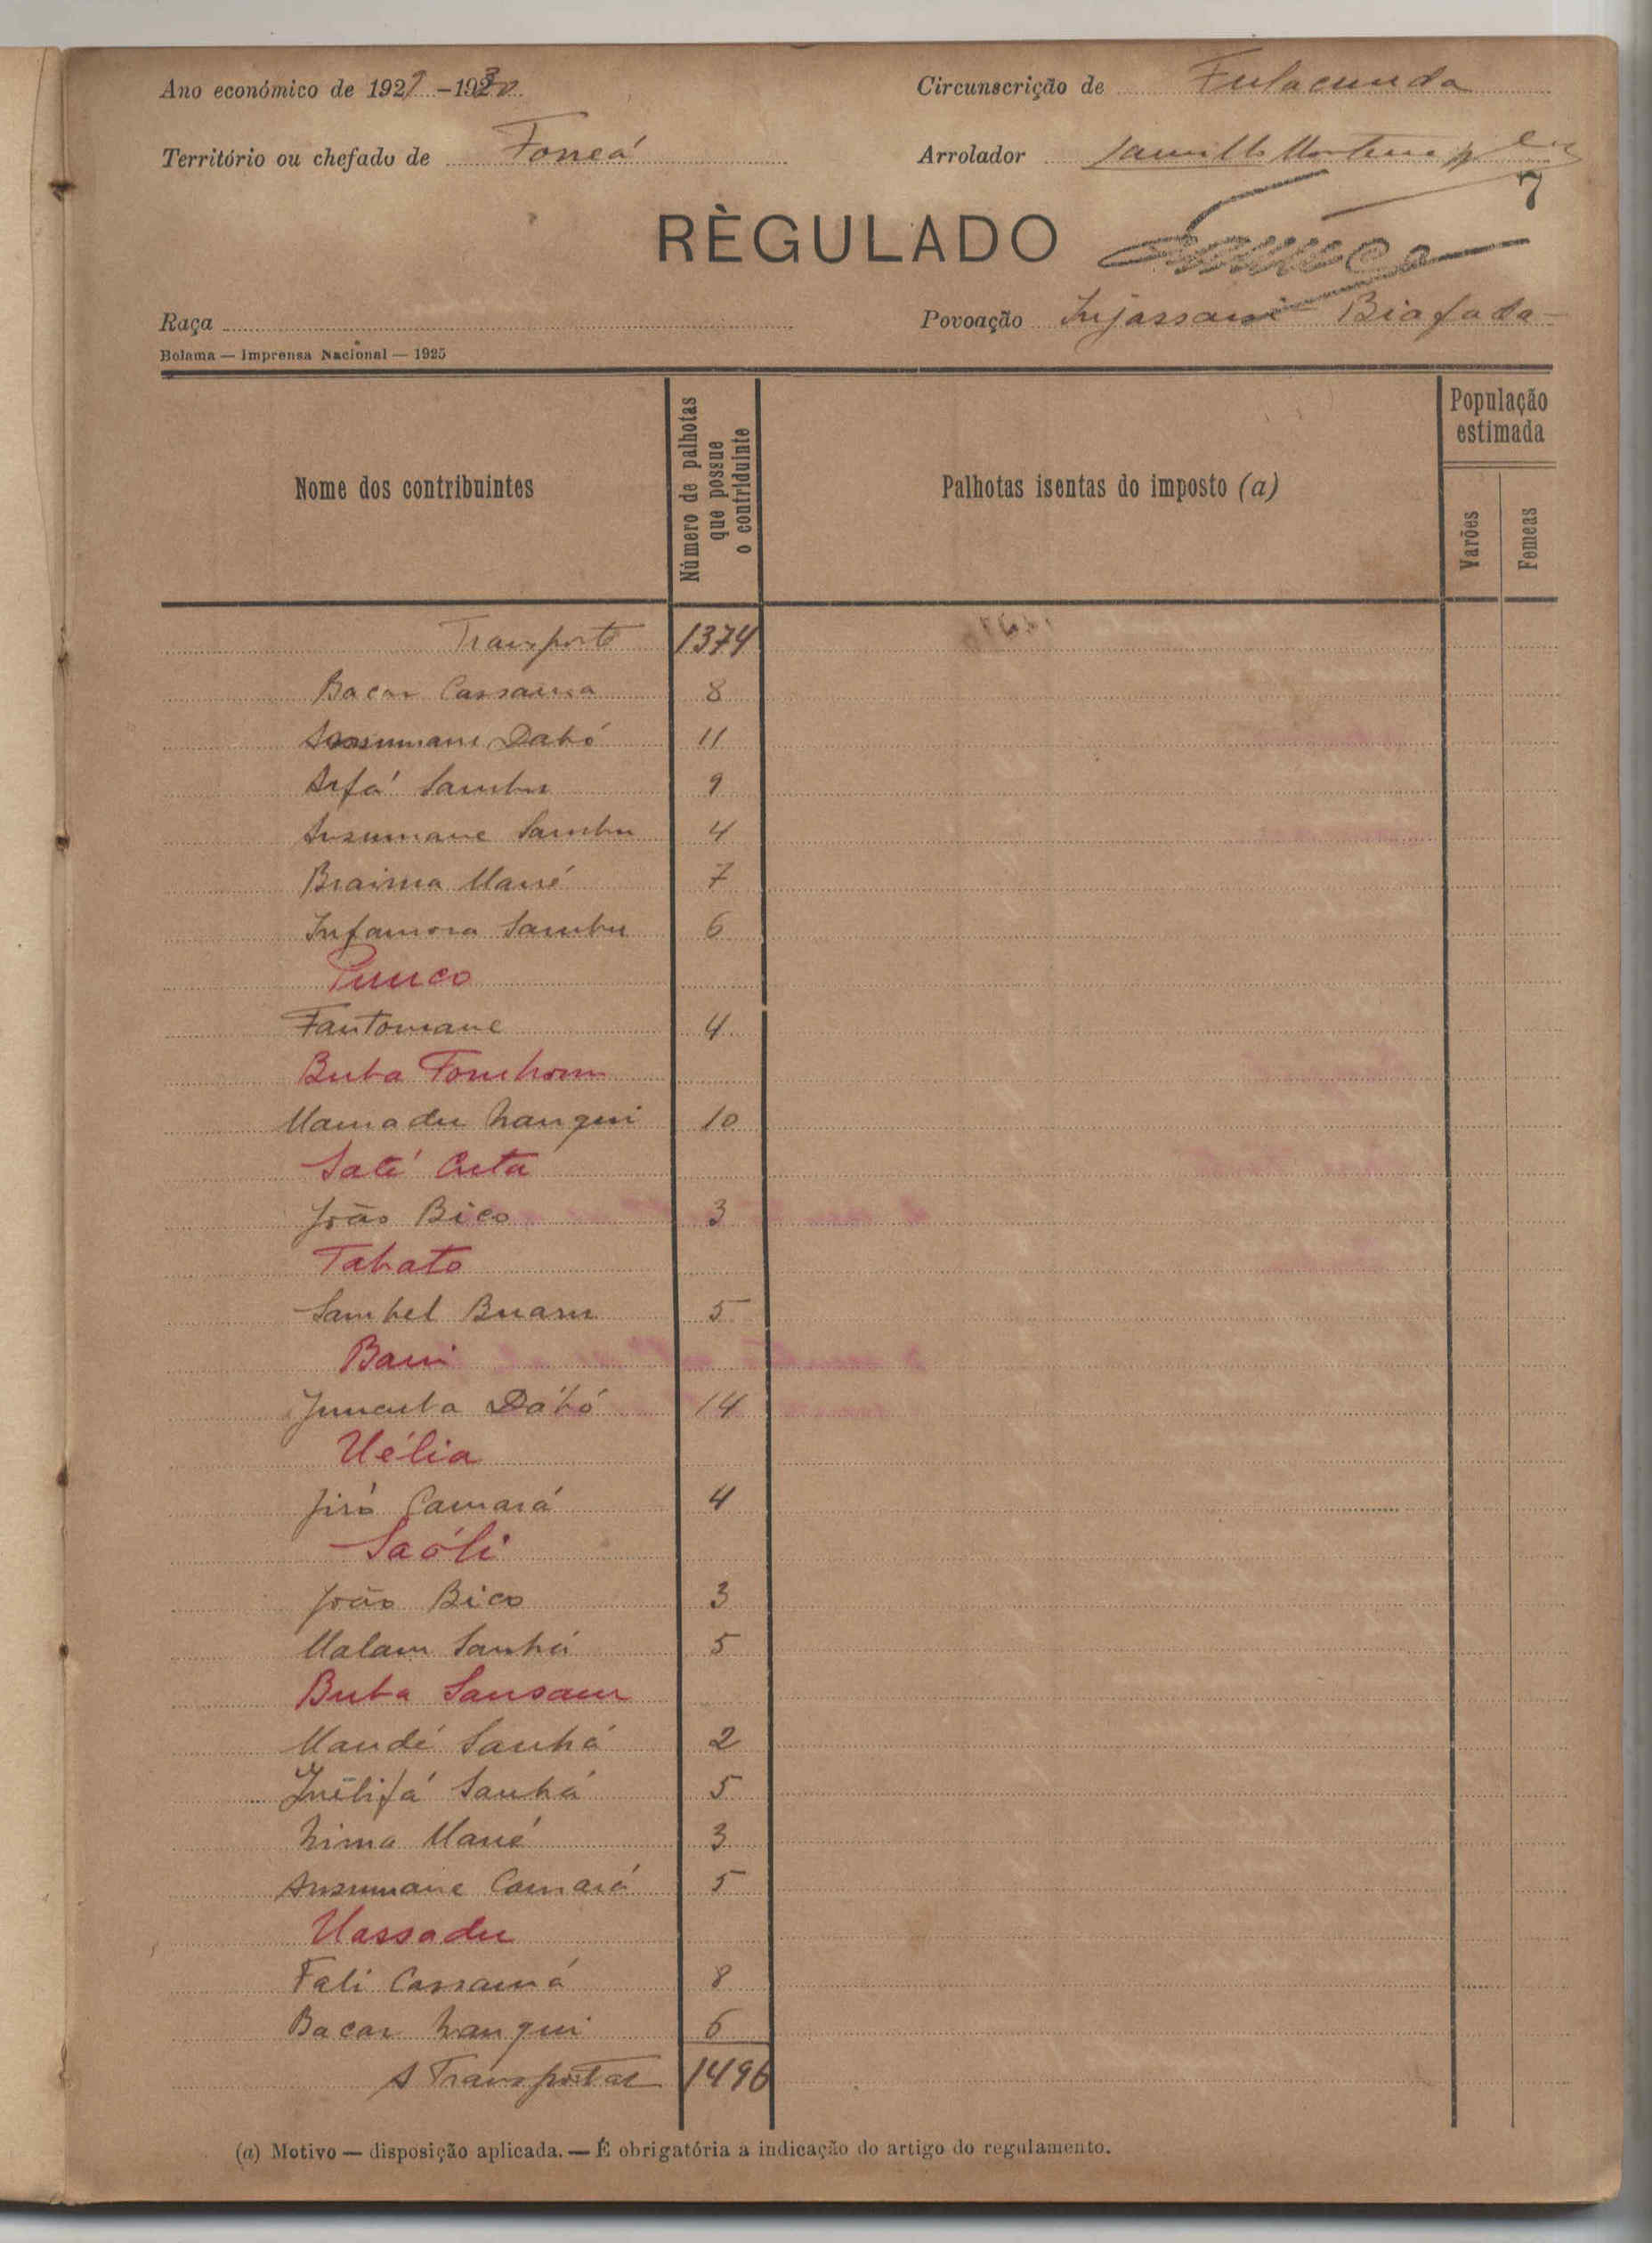 Ano económico de 1929-1930
Circunscrição de Fulacunda
Território ou chefado de Foneá
Arrolador Camillo
7
RÈGULADO
Raça
Povoação Injassani Biafada
Bolama — Imprensa Nacional — 1925
Nome dos contribuintes
Número de palhotas que possue o contriduinte
Palhotas isentas do imposto (a)
População estimada
Varões
Femeas
Transporte 1374
Bacar Cassama 8
Ansumane Dabó 11
Arfá Sambu 9
Ansumane Sambu 4
Braima Mané 7
Infamora Sambu 6
Fantomane 4
Buba Tombom
Mamadu Nanqui 10
Saté Cuta
João Bico 3
Tabato
Sambel Buaru 5
Bani
Juncuba Dábó 14
Uélia
Jiró Camará 4
Saóli
João Bico 3
Malam Sanhá 5
Buba Sansam
Mandé Sanhá 2
Sanhá 5
Nima Mané 3
Ansumane Camará 5
Uassadu
Fali Cassamá 8
Bacar Nanqui 6
A Transportar 1496
(a) Motivo — disposição aplicada. — É obrigatória a indicação do artigo do regulamento.